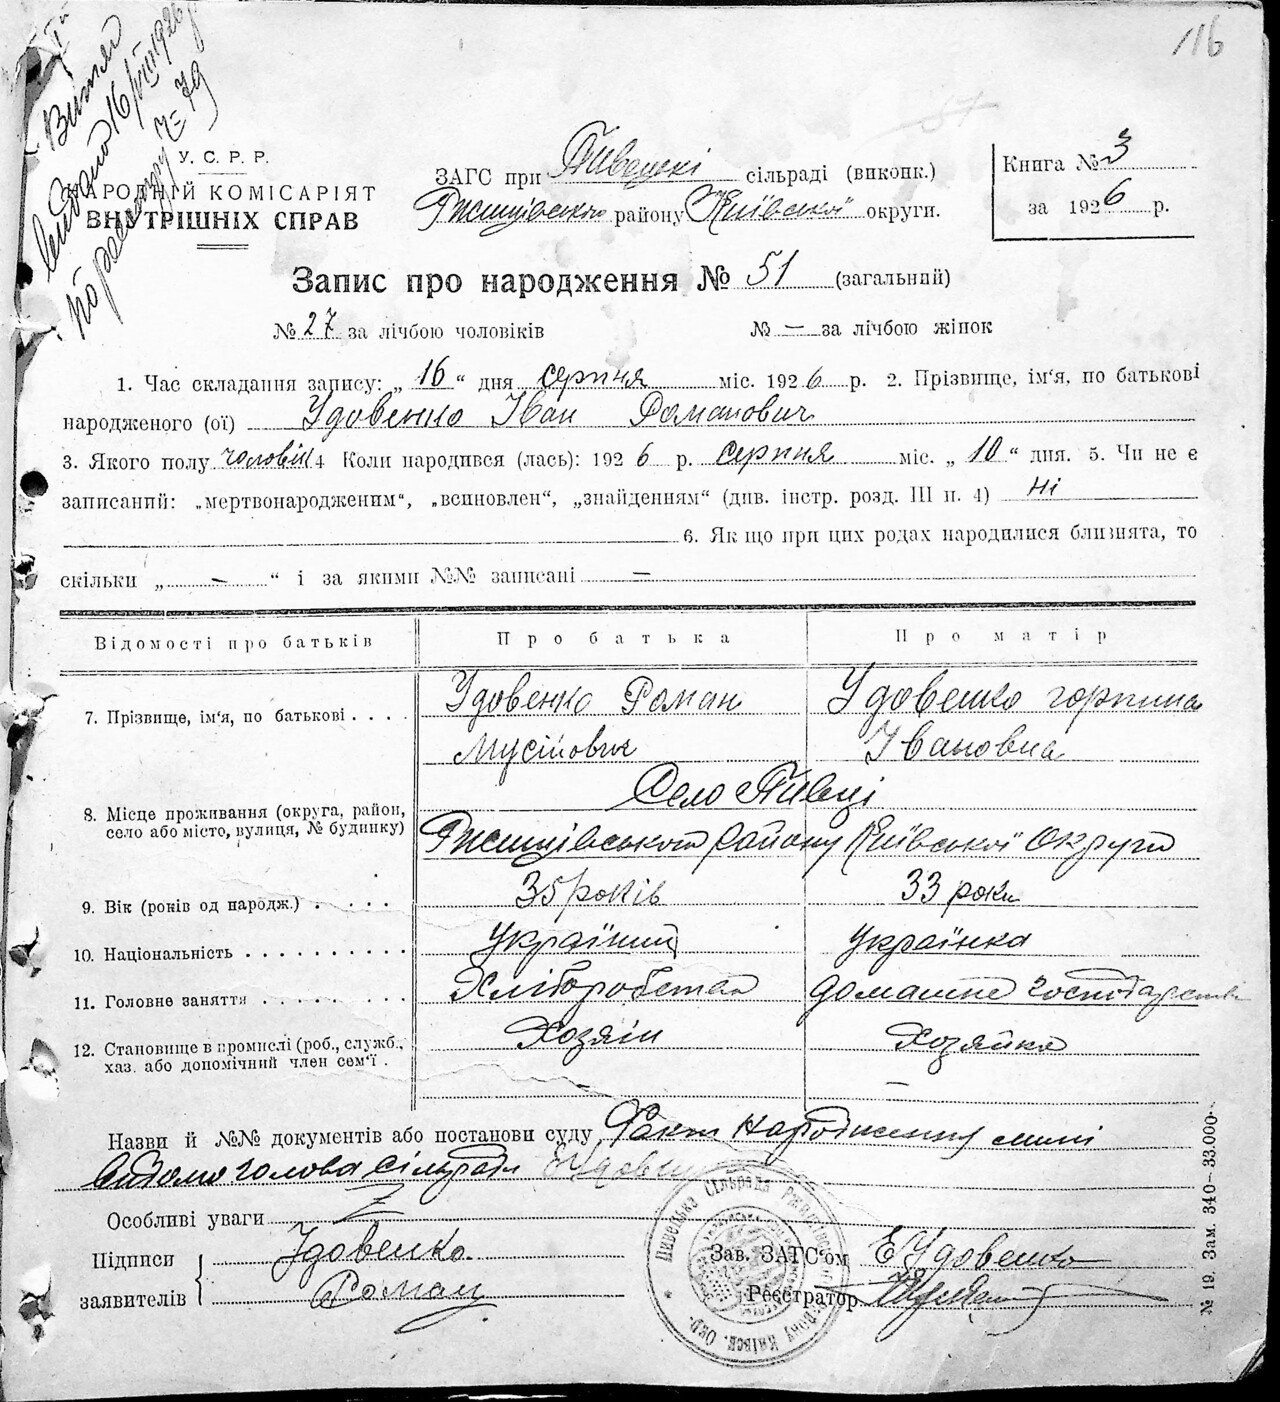 116
Витяг
видано 16/VIII 1926 р
по реєстру № 79
У. С. Р. Р.
НАРОДНІЙ КОМІСАРІЯТ
ВНУТРІШНІХ СПРАВ
ЗАГС при Пивецькі сільраді (виконк.)
Ржищівського району Київської округи.
Книга № 3
за 1926 р.
Запис про народження № 51 (загальний)
№ 27 за лічбою чоловіків № — за лічбою жінок
1. Час складання запису: „ 16 “ дня серпня міс. 1926 р. 2. Прізвище, ім'я, по батькові
народженого (ої) Удовенко Іван Романович
3. Якого полу чоловіч 4 Коли народився (лась): 1926 р. серпня міс. „ 10 “ дня. 5. Чи не є
записаний: „мертвонародженим“, „всиновлен“, „знайденням“ (див. інстр. розд. III п. 4) Ні
6. Як що при цих родах народилися близнята, то
скільки „ — “ і за якими №№ записані —
Відомості про батьків Про батька Про матір
7. Прізвище, ім'я, по батькові . . . . Удовенко Роман Удовенко Горпина
Мусійович Івановна
8. Місце проживання (округа, район, село або місто, вулиця, № будинку) Село Пивці
Ржищівського району Київської Округи
9. Вік (років од народж.) . . . . 35 років 33 роки
10. Національність . . . . . . . . . . Українець Українка
11. Головне заняття . . . . . . . . . Хліборобство домашнє господарство
12. Становище в промислі (роб., служб., Хозяїн Хозяйка
хаз. або допомічний член сем'ї . — —
Назви й №№ документів або постанови суду Факт народження мині
відомо голова сільради ЕУдовенко
Особливі уваги Z
Підписи Удовенко Зав. ЗАГС'ом ЕУдовенко
заявителів Роман Реєстратор
Пивецька Сільрада Ржищівського району Київськ. Окр.
№ 19. Зам. 340—33.000